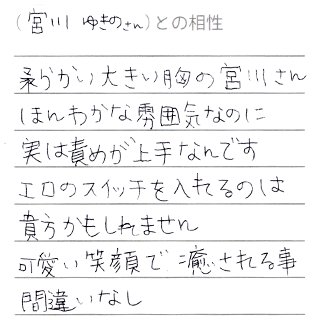 (宮川 ゆきのさん)との相性
柔らかい大きい胸の宮川さん
ほんわかな雰囲気なのに
実は責めが上手なんです
エロのスイッチを入れるのは
貴方かもしれません
可愛い笑顔で癒される事
間違いなし